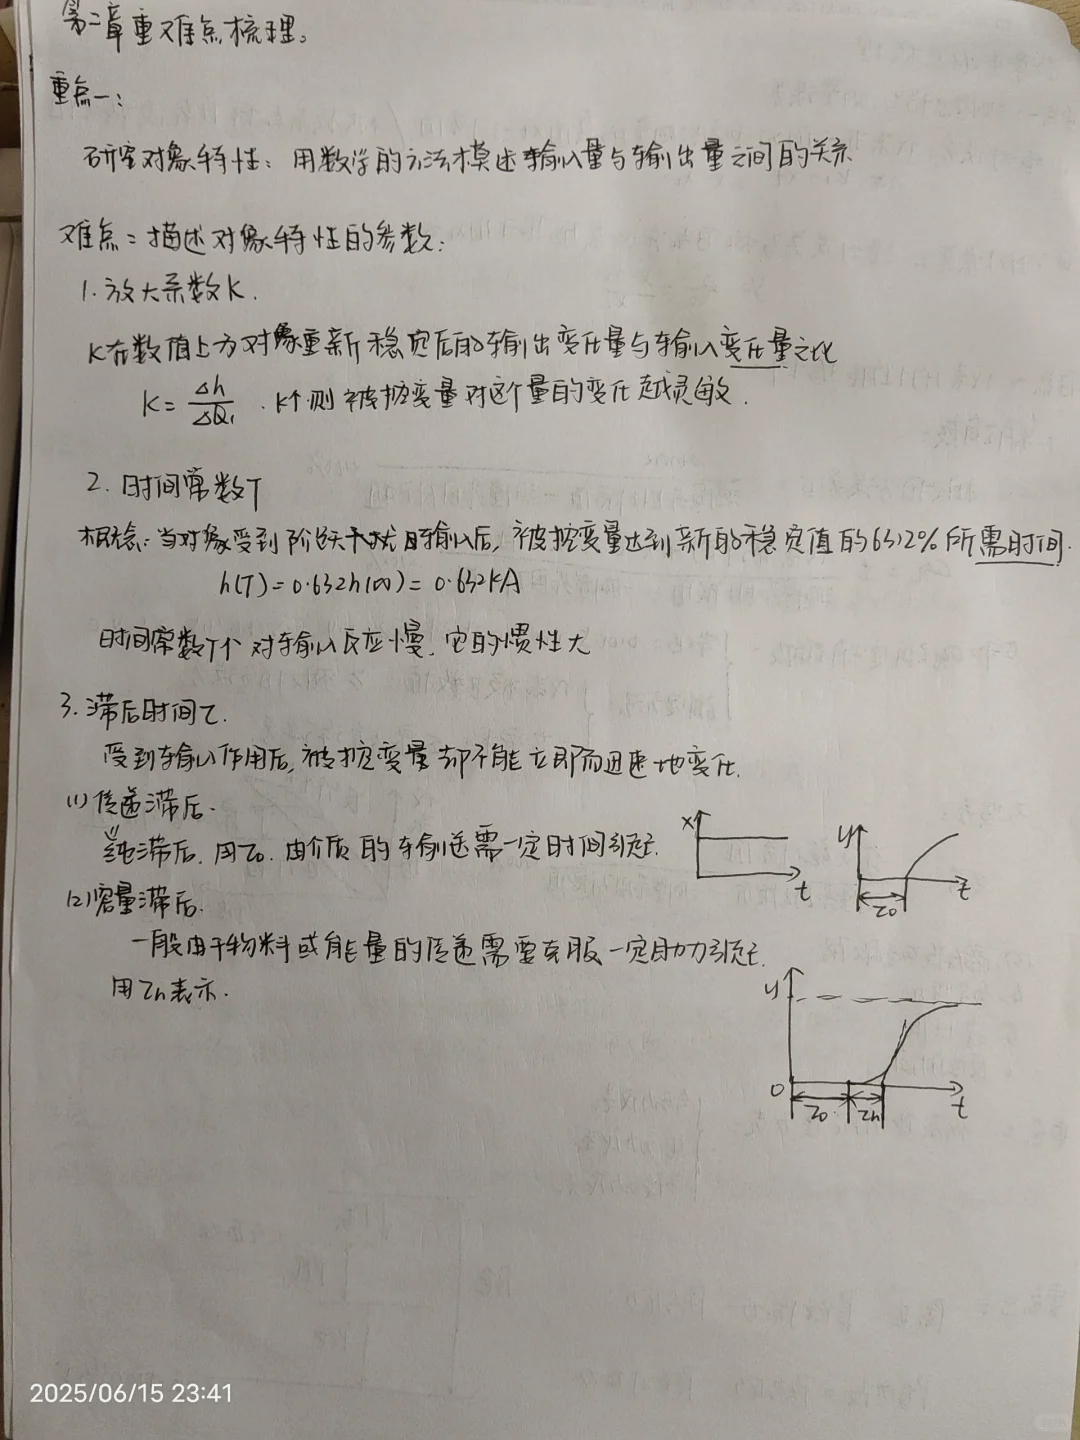 第二章重难点梳理。
重点一:
研究对象特性: 用数学的方法描述输入量与输出量之间的关系
难点=描述对象特性的参数:
1.放大系数K.
K在数值上为对象重新稳定后的输出变化量与输入变化量之比
K=Δh/ΔQ₁ . K↑则被控变量对这个量的变化越灵敏.
2. 时间常数T
概念:当对象受到阶跃干扰时输入后,被控变量达到新的稳定值的63.2%所需时间.
h(T)=0.632h(∞)=0.632KA
时间常数T↑ 对输入反应慢,它的惯性大
3.滞后时间τ.
受到输入作用后,被控变量却不能立即而迅速地变化.
(1)传递滞后.
纯滞后.用τ₀. 由介质的输送需一定时间引起.
x
t
y
τ₀
t
(2)容量滞后.
一般由于物料或能量的传递需要克服一定阻力引起.
用τh表示.
y
0
τ₀
τh
t
2025/06/15 23:41